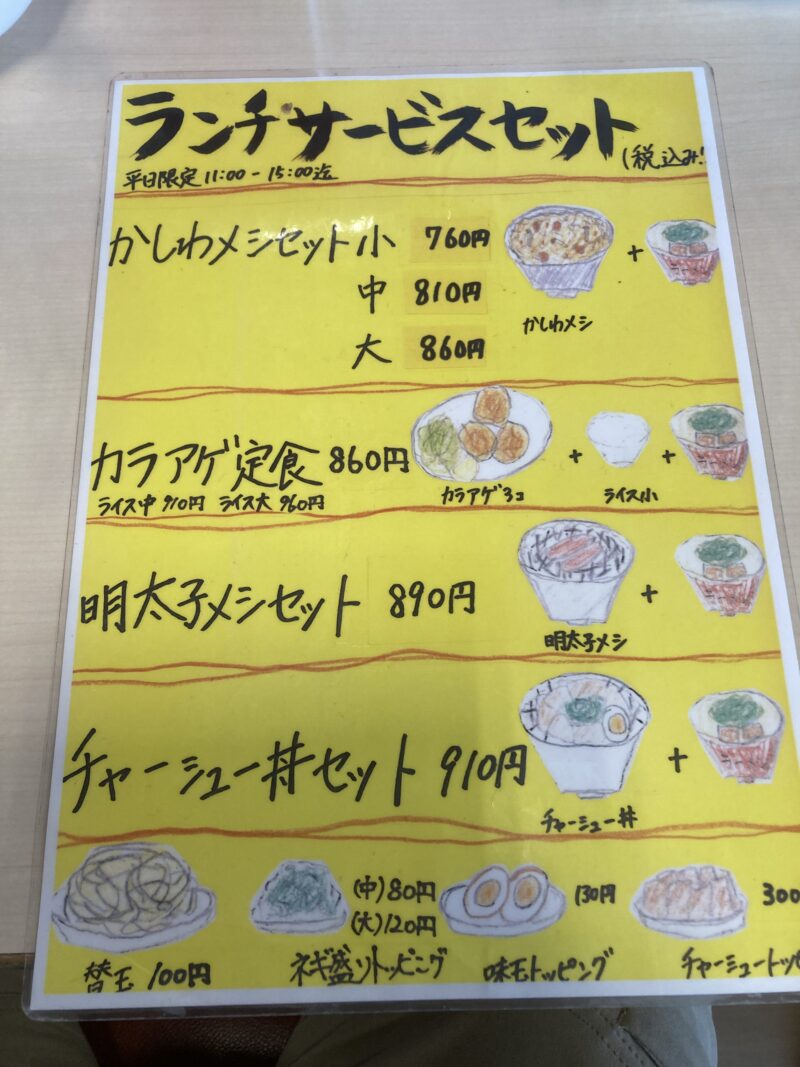 ランチサービスセット
(税込み!
平日限定 11:00 - 15:00迄
かしわメシセット小 760円
中 810円
大 860円
かしわメシ
カラアゲ定食 860円
ライス中 910円 ライス大 960円
カラアゲ3コ
ライス小
明太子メシセット 890円
明太子メシ
チャーシュー丼セット 910円
チャーシュー丼
替玉 100円
(中)80円
(大)120円
ネギ盛りトッピング
130円
味玉トッピング
300
チャーシュートッピ